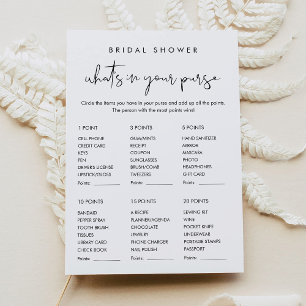 BRIDAL SHOWER
what's in your purse
Circle the items you have in your purse and add up all the points.
The person with the most points wins!
1 POINT 3 POINTS 5 POINTS
CELL PHONE GUM/MINTS HAND SANITIZER
CREDIT CARD RECEIPT MIRROR
KEYS COUPON MASCARA
PEN SUNGLASSES PHOTO
DRIVERS LICENSE BRUSH/COMB HEADPHONES
LIPSTICK/GLOSS TWEEZERS GIFT CARD
Points: Points: Points:
10 POINTS 15 POINTS 20 POINTS
BANDAID A RECIPE SEWING KIT
PEPPER SPRAY PLANNER/AGENDA WINE
TOOTH BRUSH CHOCOLATE POCKET KNIFE
TISSUES JEWELRY UNDERWEAR
LIBRARY CARD PHONE CHARGER POSTAGE STAMPS
CHECK BOOK NAIL POLISH PASSPORT
Points: Points: Points: